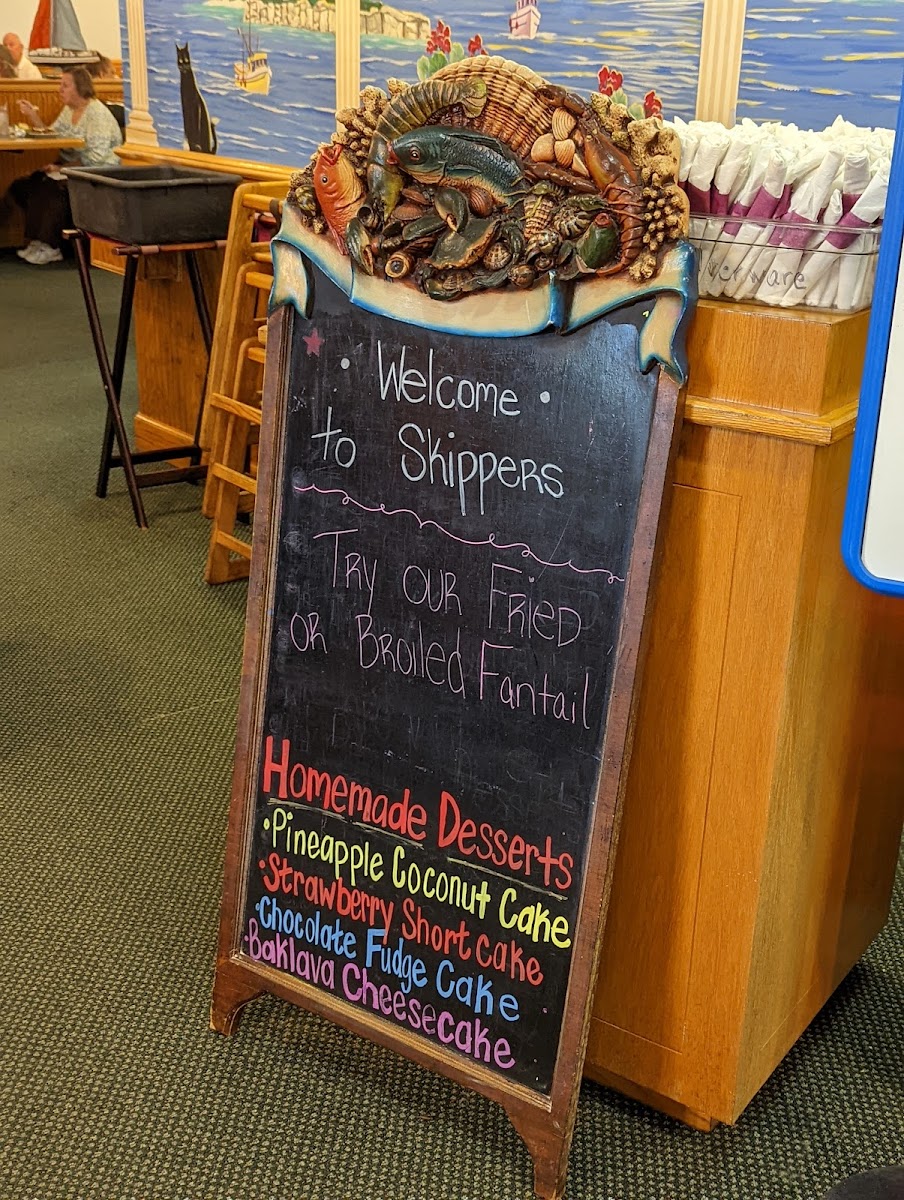 • Welcome •
to Skippers
Try our Fried
or Broiled Fantail
Homemade Desserts
• Pineapple Coconut Cake
• Strawberry Short cake
• Chocolate Fudge Cake
• Baklava Cheesecake